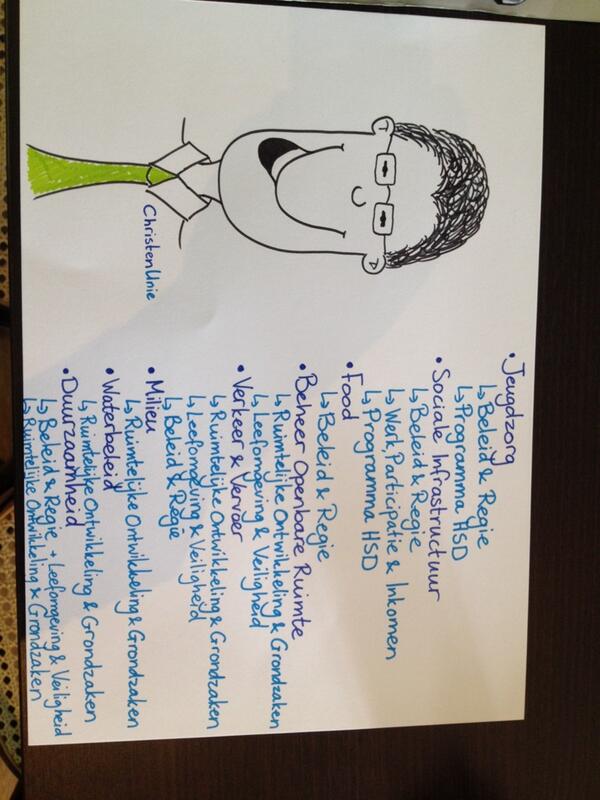 ChristenUnie
• Jeugdzorg
↳ Beleid & Regie
↳ Programma HSD
• Sociale Infrastructuur
↳ Beleid & Regie
↳ Werk, Participatie & Inkomen
↳ Programma HSD
• Food
↳ Beleid & Regie
• Beheer Openbare Ruimte
↳ Ruimtelijke Ontwikkeling & Grondzaken
↳ Leefomgeving & Veiligheid
• Verkeer & Vervoer
↳ Ruimtelijke Ontwikkeling & Grondzaken
↳ Leefomgeving & Veiligheid
↳ Beleid & Regie
• Milieu
↳ Ruimtelijke Ontwikkeling & Grondzaken
• Waterbeleid
↳ Ruimtelijke Ontwikkeling & Grondzaken
• Duurzaamheid
↳ Beleid & Regie + Leefomgeving & Veiligheid
↳ Ruimtelijke Ontwikkeling & Grondzaken